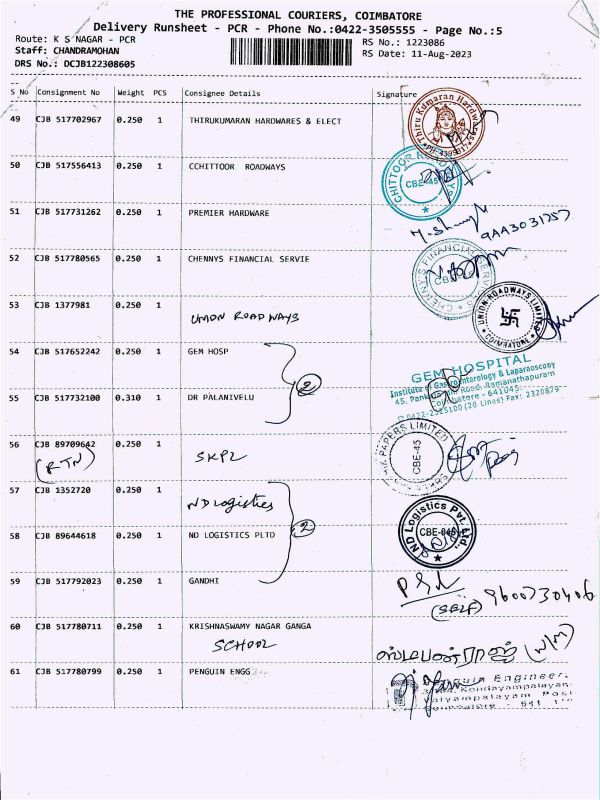 THE PROFESSIONAL COURIERS, COIMBATORE
Delivery Runsheet - PCR - Phone No.:0422-3505555 - Page No.:5
Route: K S NAGAR - PCR
RS No.: 1223086
Staff: CHANDRAMOHAN
RS Date: 11-Aug-2023
DRS No.: DCJB122308605
S No Consignment No Weight PCS Consignee Details Signature
49 CJB 517702967 0.250 1 THIRUKUMARAN HARDWARES & ELECT
Thiru Kumaran Hardwares
50 CJB 517556413 0.250 1 CCHITTOOR ROADWAYS
CHITTOOR ROADWAYS
CBE-45
51 CJB 517731262 0.250 1 PREMIER HARDWARE
52 CJB 517780565 0.250 1 CHENNYS FINANCIAL SERVIE
CHENNYS FINANCIAL SERVICES
53 CJB 1377981 0.250 1 UNION ROADWAYS
UNION ROADWAYS LIMITED
COIMBATORE
54 CJB 517652242 0.250 1 GEM HOSP
2
GEM HOSPITAL
Institute of Gastroenterology & Laparoscopy
45, Road, Ramanathapuram
Coimbatore - 641045.
(20 Lines) Fax: 2320879
55 CJB 517732100 0.310 1 DR PALANIVELU
56 CJB 89709642 0.250 1 SKPL
(RTN)
PAPERS LIMITED
CBE-45
57 CJB 1352720 0.250 1 ND Logistics
2
58 CJB 89644618 0.250 1 ND LOGISTICS PLTD
ND Logistics Pvt. Ltd.
CBE-045
59 CJB 517792023 0.250 1 GANDHI
(SELF) 9600730406
60 CJB 517780711 0.250 1 KRISHNASWAMY NAGAR GANGA
SCHOOL
ஸ்டீபன்ராஜ் (W/M)
61 CJB 517780799 0.250 1 PENGUIN ENGG
Penguin Engineer
Kondayampalayam